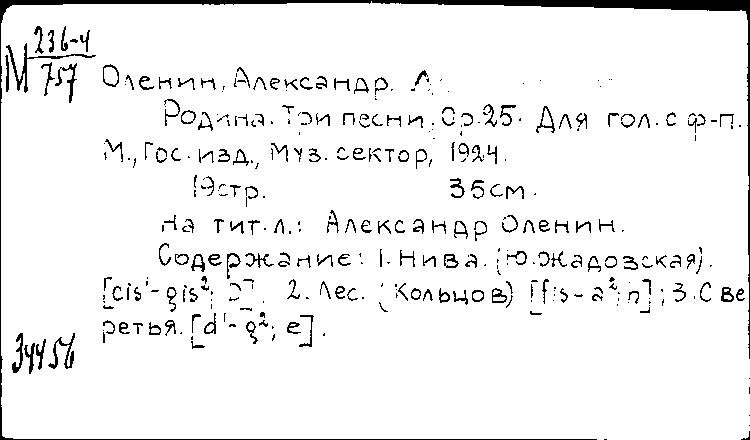 М 236-4
757
Оленин, Александр. А.
Родина. Три песни. Ор. 25. Для гол. с ф-п.
М., Гос. изд., Муз. сектор, 1924.
19стр. 35см.
На тит. л.: Александр Оленин.
Содержание: 1. Нива. (Ю. Жадовская).
[cis¹-gis²; ]. 2. Лес. (Кольцов) [fis-a²; h]; 3. С ве
ретья. [d¹-g²; e].
34456